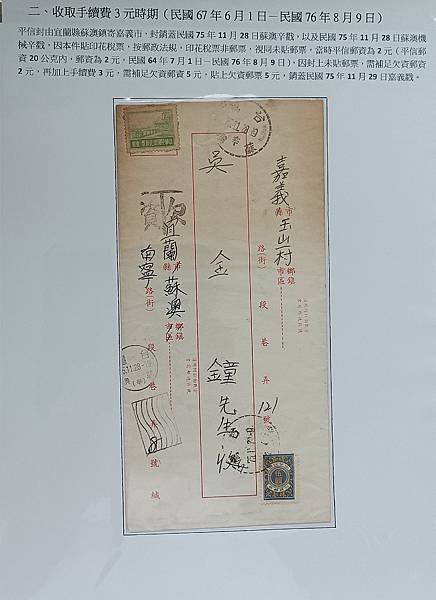 二、收取手續費 3 元時期（民國 67 年 6 月 1 日－民國 76 年 8 月 9 日）
平信封由宜蘭縣蘇澳鎮寄嘉義市，封銷蓋民國 75 年 11 月 28 日蘇澳辛戳，以及民國 75 年 11 月 28 日蘇澳機
械辛戳，因本件貼印花稅票，按郵政法規，印花稅票非郵票，視同未貼郵票，當時平信郵資為 2 元（平信郵
資 20 公克內，郵資為 2 元，民國 64 年 7 月 1 日－民國 76 年 8 月 9 日），因封上未貼郵票，需補足欠資郵資
2 元，再加上手續費 3 元，需補足欠資郵資 5 元，貼上欠資郵票 5 元，銷蓋民國 75 年 11 月 29 日嘉義戳。
嘉義市縣玉山村鄉鎮市區
路街段巷弄121號
吳金鐘先生收
欠資
宜蘭市縣蘇澳鄉鎮市區
南寧路街段巷弄8號緘